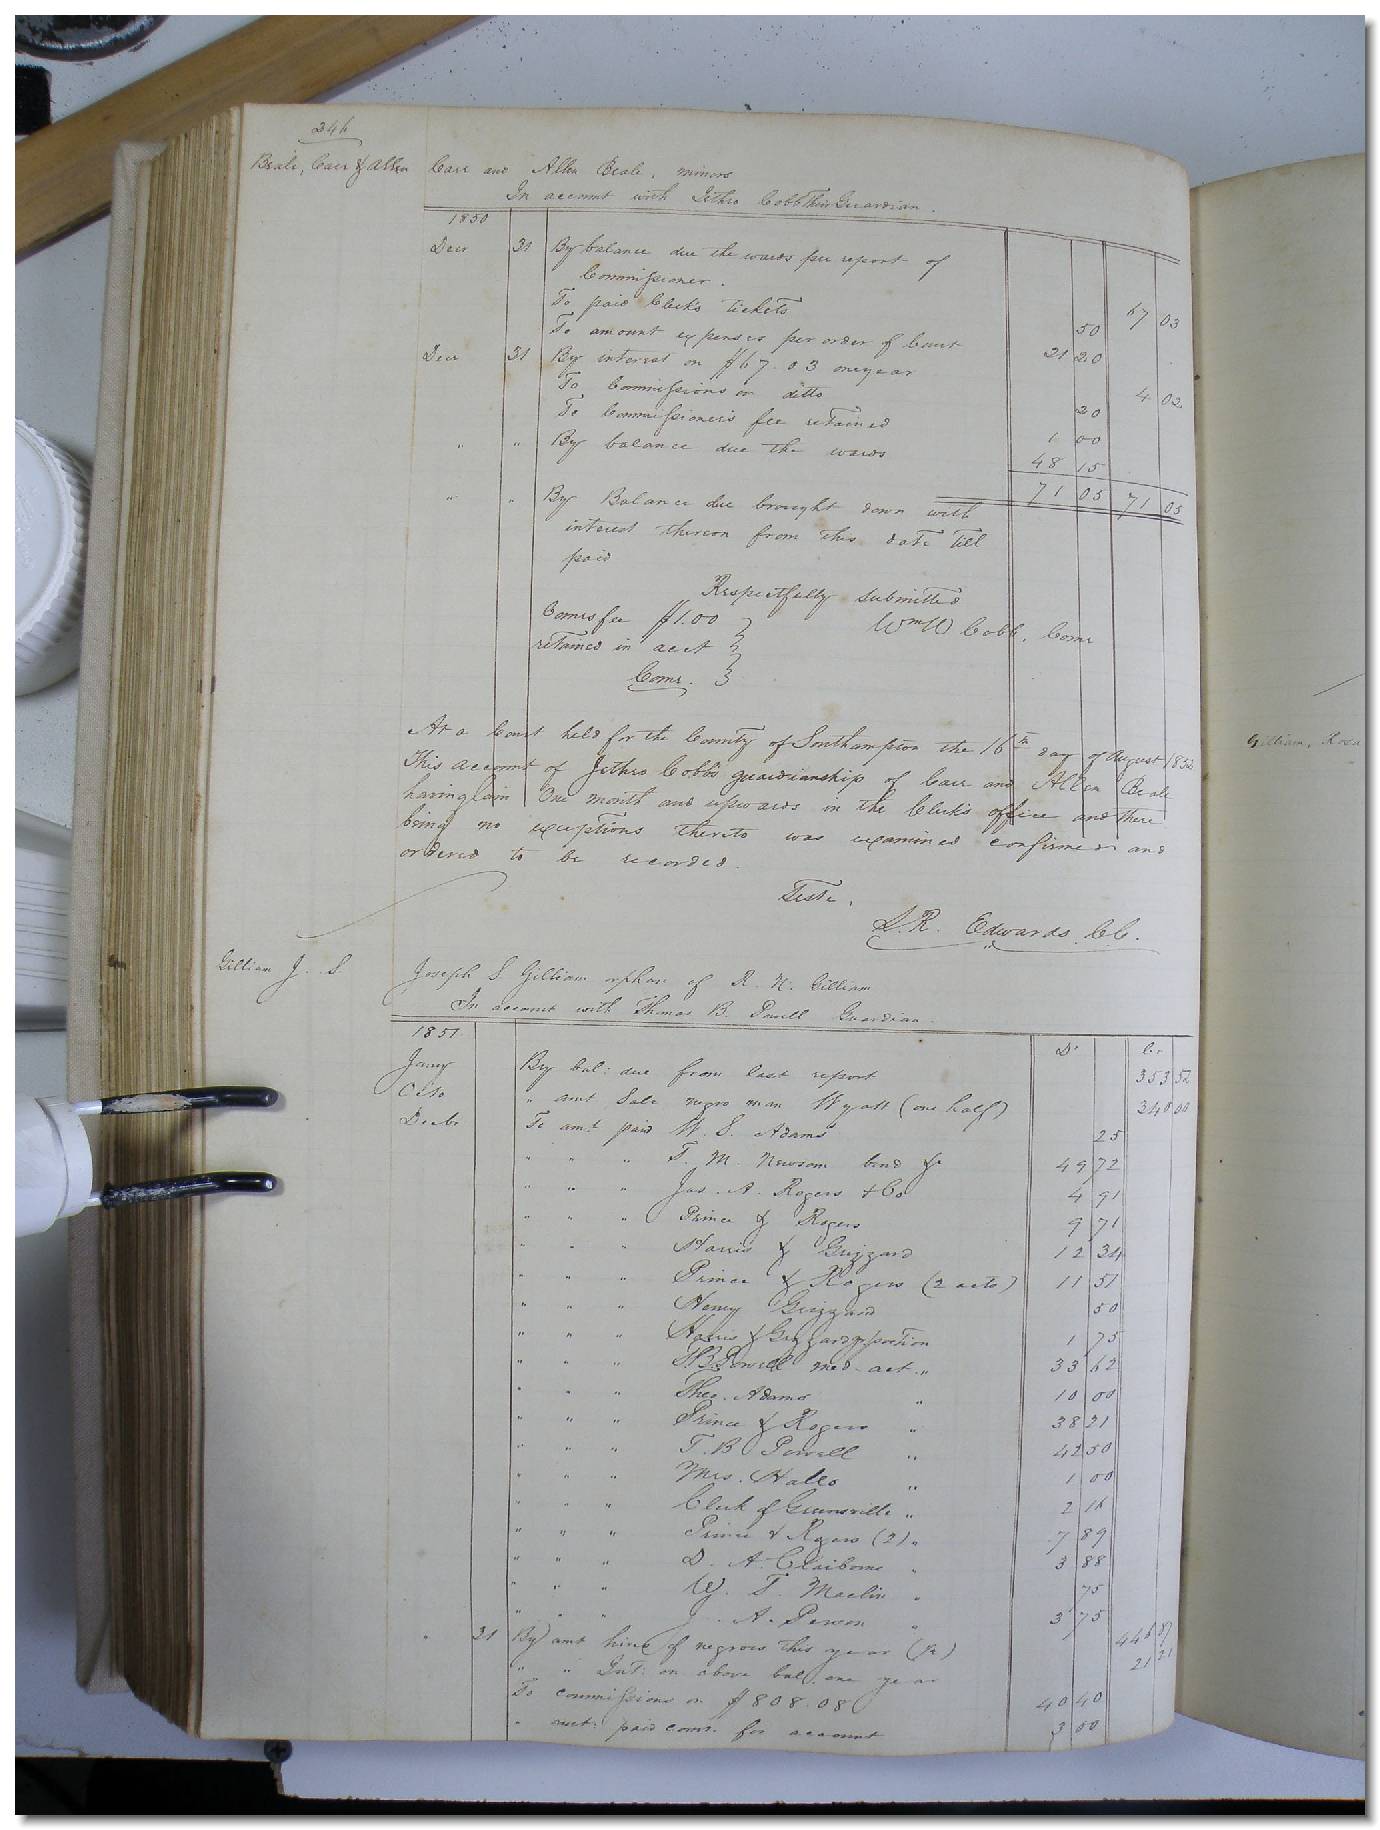 246
Beale, Carr & Allen
Carr and Allen Beale, minors
In account with Jethro Cobb Their Guardian.
1850
Decr 31 By balance due the wards per report of
Commissioner. 67 03
To paid Clerks tickets 50
To amount expenses per order of Court 21 20
Decr 31 By interest on $67.03 one year 4 02
To Commissions on ditto 20
To Commissioner's fee retained 1 00
" " By balance due the wards 48 15
71 05 71 05
" " By Balance due brought down with
interest thereon from this date till
paid
Respectfully submitted
Comrs fee $1.00 } Wm W Cobb, Comr
retained in acct }
Comr. }
At a Court held for the County of Southampton the 16th day of August 1852
This account of Jethro Cobb's guardianship of Carr and Allen Beale
having lain One month and upwards in the Clerk's office and there
being no exceptions thereto was examined confirmed and
ordered to be recorded.
Teste,
L. R. Edwards. CC.
Gilliam J. S
Joseph S Gilliam orphan of R. N. Gilliam
In account with Thomas B. Powell Guardian.
1851 Dr Cr
Jany By bal: due from last report 353 52
Octo " amt Sale negro man Wyatt (one half) 340 00
Decbr To amt paid W. S. Adams 25
" " " T. M. Newsom bond &c 49 72
" " " Jas. A. Rogers & Co 4 91
" " " Prince & Rogers 9 71
" " " Harris & Grizzard 12 34
" " " Prince & Rogers (2 acts) 11 51
" " " Henry Grizzard 50
" " " Harris & Grizzard proportion 1 75
" " " T.B. Powell med. act. " 33 62
" " " Theo. Adams " 10 00
" " " Prince & Rogers " 38 21
" " " T. B Powell " 42 50
" " " Mrs. Hales " 1 00
" " " Clerk of Greensville " 2 16
" " " Prince & Rogers (2) " 7 89
" " " D. A. Claiborne " 3 88
" " " W. T. Maclin " 75
" " " J. A. Person " 3 75
" 31 By amt hire of negroes this year 446 87
" " Int: on above bal. one year 21 21
To commissions on $808.08 40 40
" amt: paid comr. for account 3 00
Gilliam, Rosa